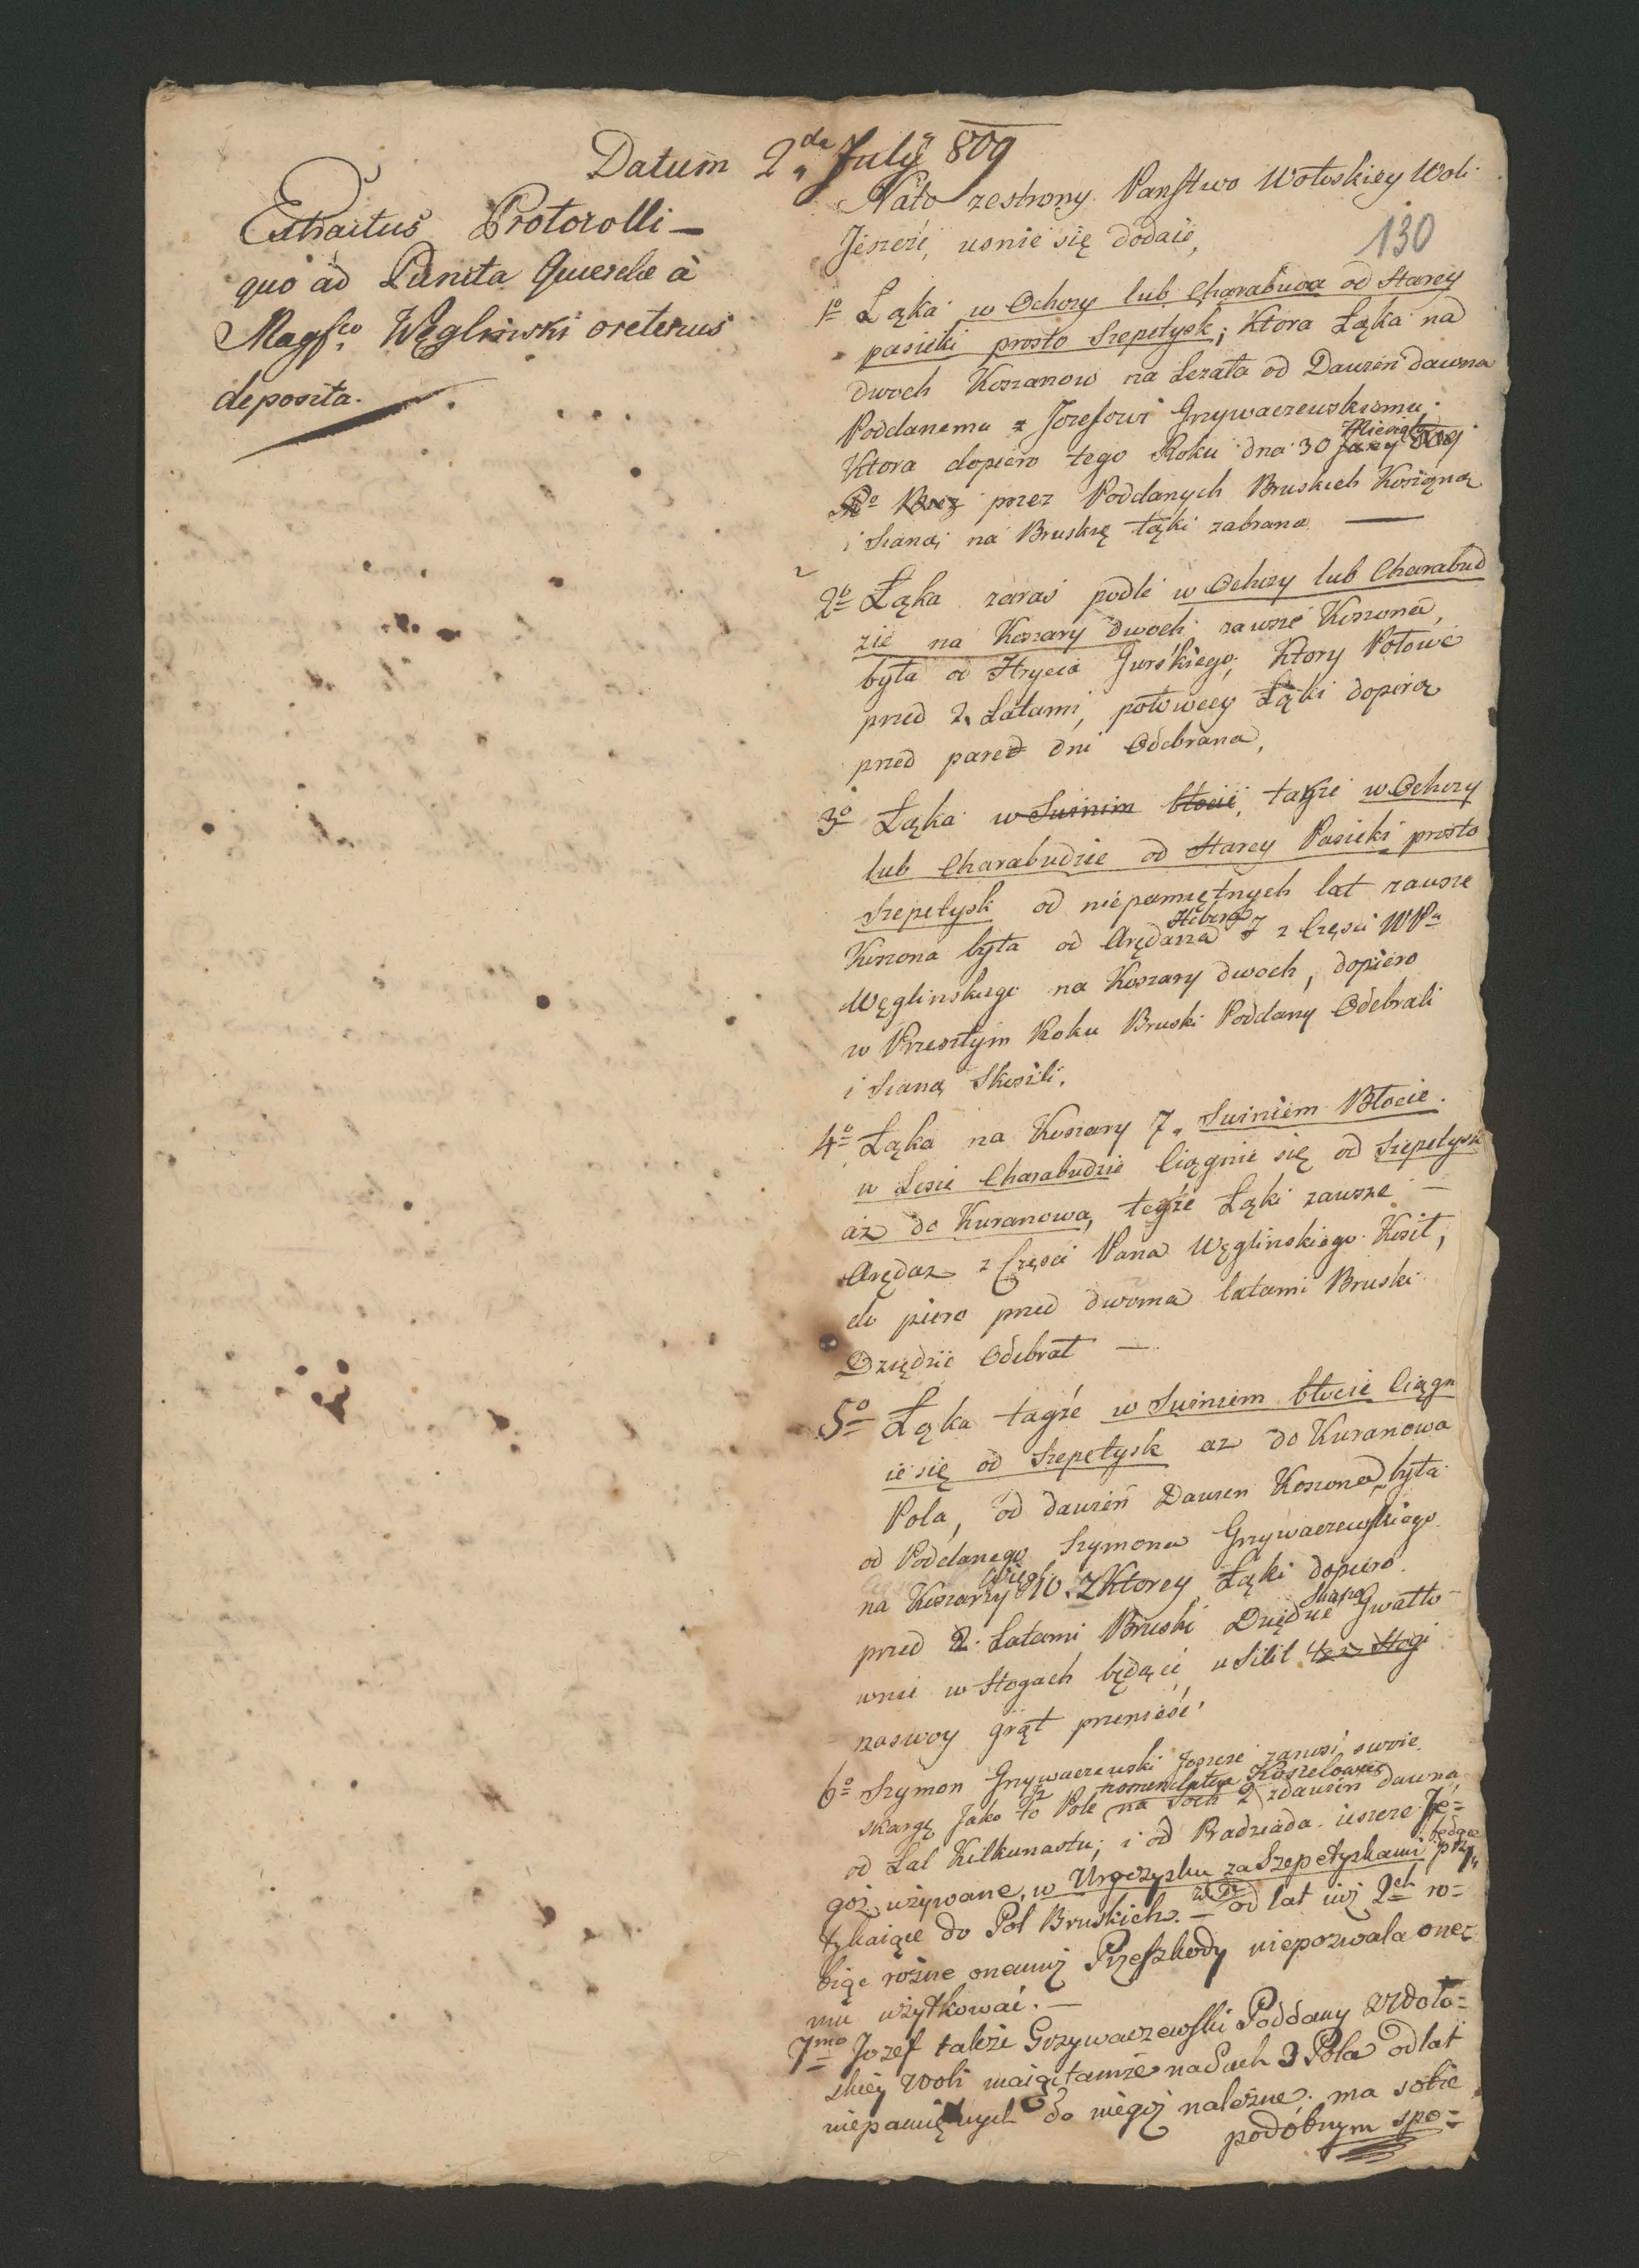 Datum 2da July 809
Extractus Protocolli
quo ad Puncta Querelae à
Magfco Węgliński oretenus
deposita.
Nato zestrony Panstwo Wołoskiey Woli
Jeszcze, usnie się dodaie,
130
1o Łąka w Ochozy lub Charabuda od Starey
pasieki prosto Szepetysk; Ktora Łąka na
dwoch Koszarow na Lezała od Dawien dawna
Poddanemu z Jozefowi Grzywaczewskiemu;
Ktora dopiero tego Roku dna 30 Miesiąca
przez Poddanych Bruskich Koszoną
i Siano na Bruskię łąki zabrana
2o Łąka zaraz podle w Ochozy lub Charabud
zie na Koszary dwoch zawsze Koszona,
była od Hrycia Gurskiego, Ktory Połowe
pred 2. Latami, połowecy Łąki dopiro
pred pared dni Odebrana,
3o Łąka w Swinim błocie, tagze w Ochozy
lub Charabudzie od Starey Pasieki prosto
Szepetysk od niepamiętnych lat zawsze
Koszona była od Arędarza z Częsci WPa
Węglinskiego na Koszary dwoch, dopiero
w Przeszłym Roku Bruski Poddany Odebrali
i Siano Skosili.
4o Łąka na Koszary 7. Swiniem Błocie.
w Lesie Charabudzie Ciągnie się od Szepetysk
az do Kuranowa, tegże Łąki zawsze
Arędaz z Częsci Pana Węglinskiego Kosił,
do piero pred dwoma latami Bruski
Dziędzic Odebrał
5o Łąka tagże w Swiniem błocie Ciągn
ie się od Szepetysk az do Kuranowa
Pola, od dawień Dawen Koszona była
od Poddanego Szymona Grzywaczewskiego
na Koszary 10. z Ktorey Łąki dopiero
pred 2. Latami Bruski Dziędzic Siano Gwałto
wnie w Stogach będące usilił też Stogi
naswoy grąt przeniesć
6o Szymon Grzywaczewski Jeszcze zanosi swoie
skargę Jako to Pole nomenclatur Koszelowes na Soch 2 zdawień dawna
od Lat Kilkunastu; i od Pradziada ieszcze Je=
goż używane, w Uroczysku za Szepetyskami będące przy
tykaiące do Pol Bruskich. od lat iuż 2ch ro=
biąc rożne onemuż Przeszkody niepozwala one=
mu użytkować.
7mo Jozef także Grzywaczewski Poddany Wolo=
skiey Woli maiąc tamże na Soch 3 Pola od lat
niepamiętnych do niegoż należne, ma sobie
podobnym spo=